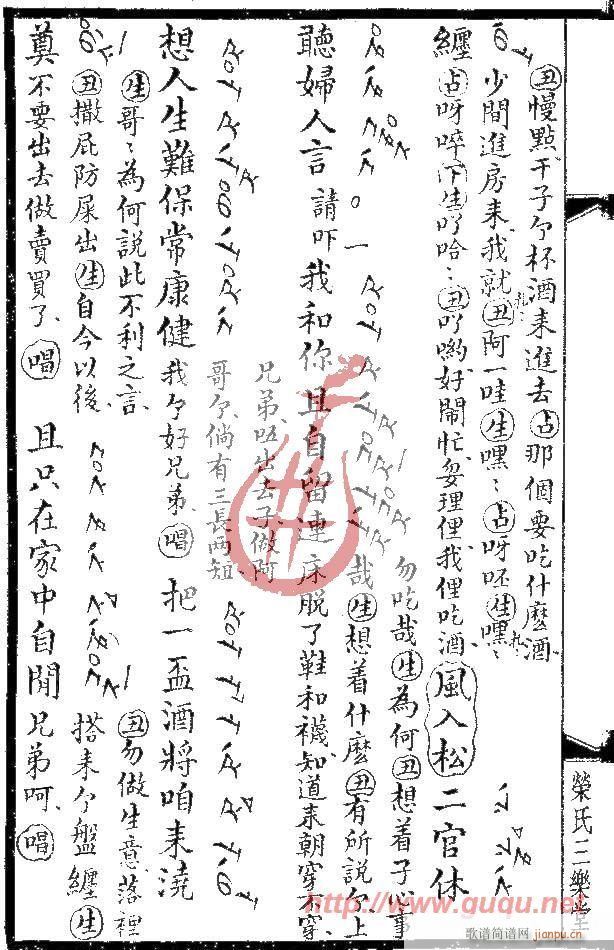 丑慢點干子个杯酒耒進去占那個要吃什麽酒
少間進房耒我就丑阿一哇生嘿〻占呀呸生嘿〻
纏占呀啐下生吖哈〻丑吖喲好鬧忙妥理俚我俚吃酒風入松二官休
勿吃哉生為何丑想着子心事
哉生想着什麽丑有所說个上
聽婦人言請吓我和你且自留連床脫了鞋和襪知道耒朝穿不穿
兄弟呸出去子做阿
哥个倘有三長两短
想人生難保常康健我个好兄弟唱把一盃酒將咱耒澆
生哥〻為何說此不利之言丑勿做生意落裡
丑撒屁防屎出生自今以後搭耒个盤纏生
奠不要出去做賣買了唱且只在家中自閒兄弟呵唱
榮氏三樂堂
http://www.guqu.net
歌谱简谱网
jianpu.cn